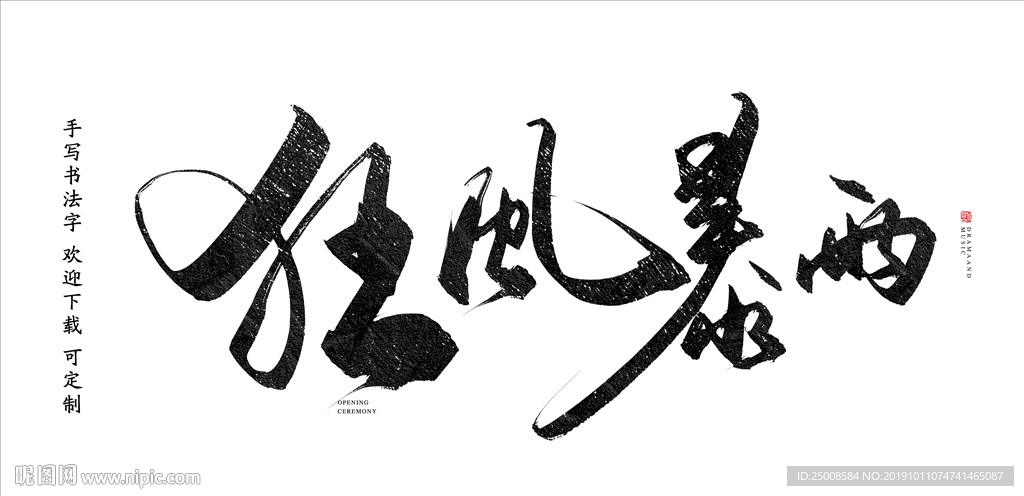 手写书法字 欢迎下载 可定制
狂风暴雨
OPENING
CEREMONY
DRAMAAND
MUSIC
昵图网 www.nipic.com
ID:25008584 NO:20191011074741465087